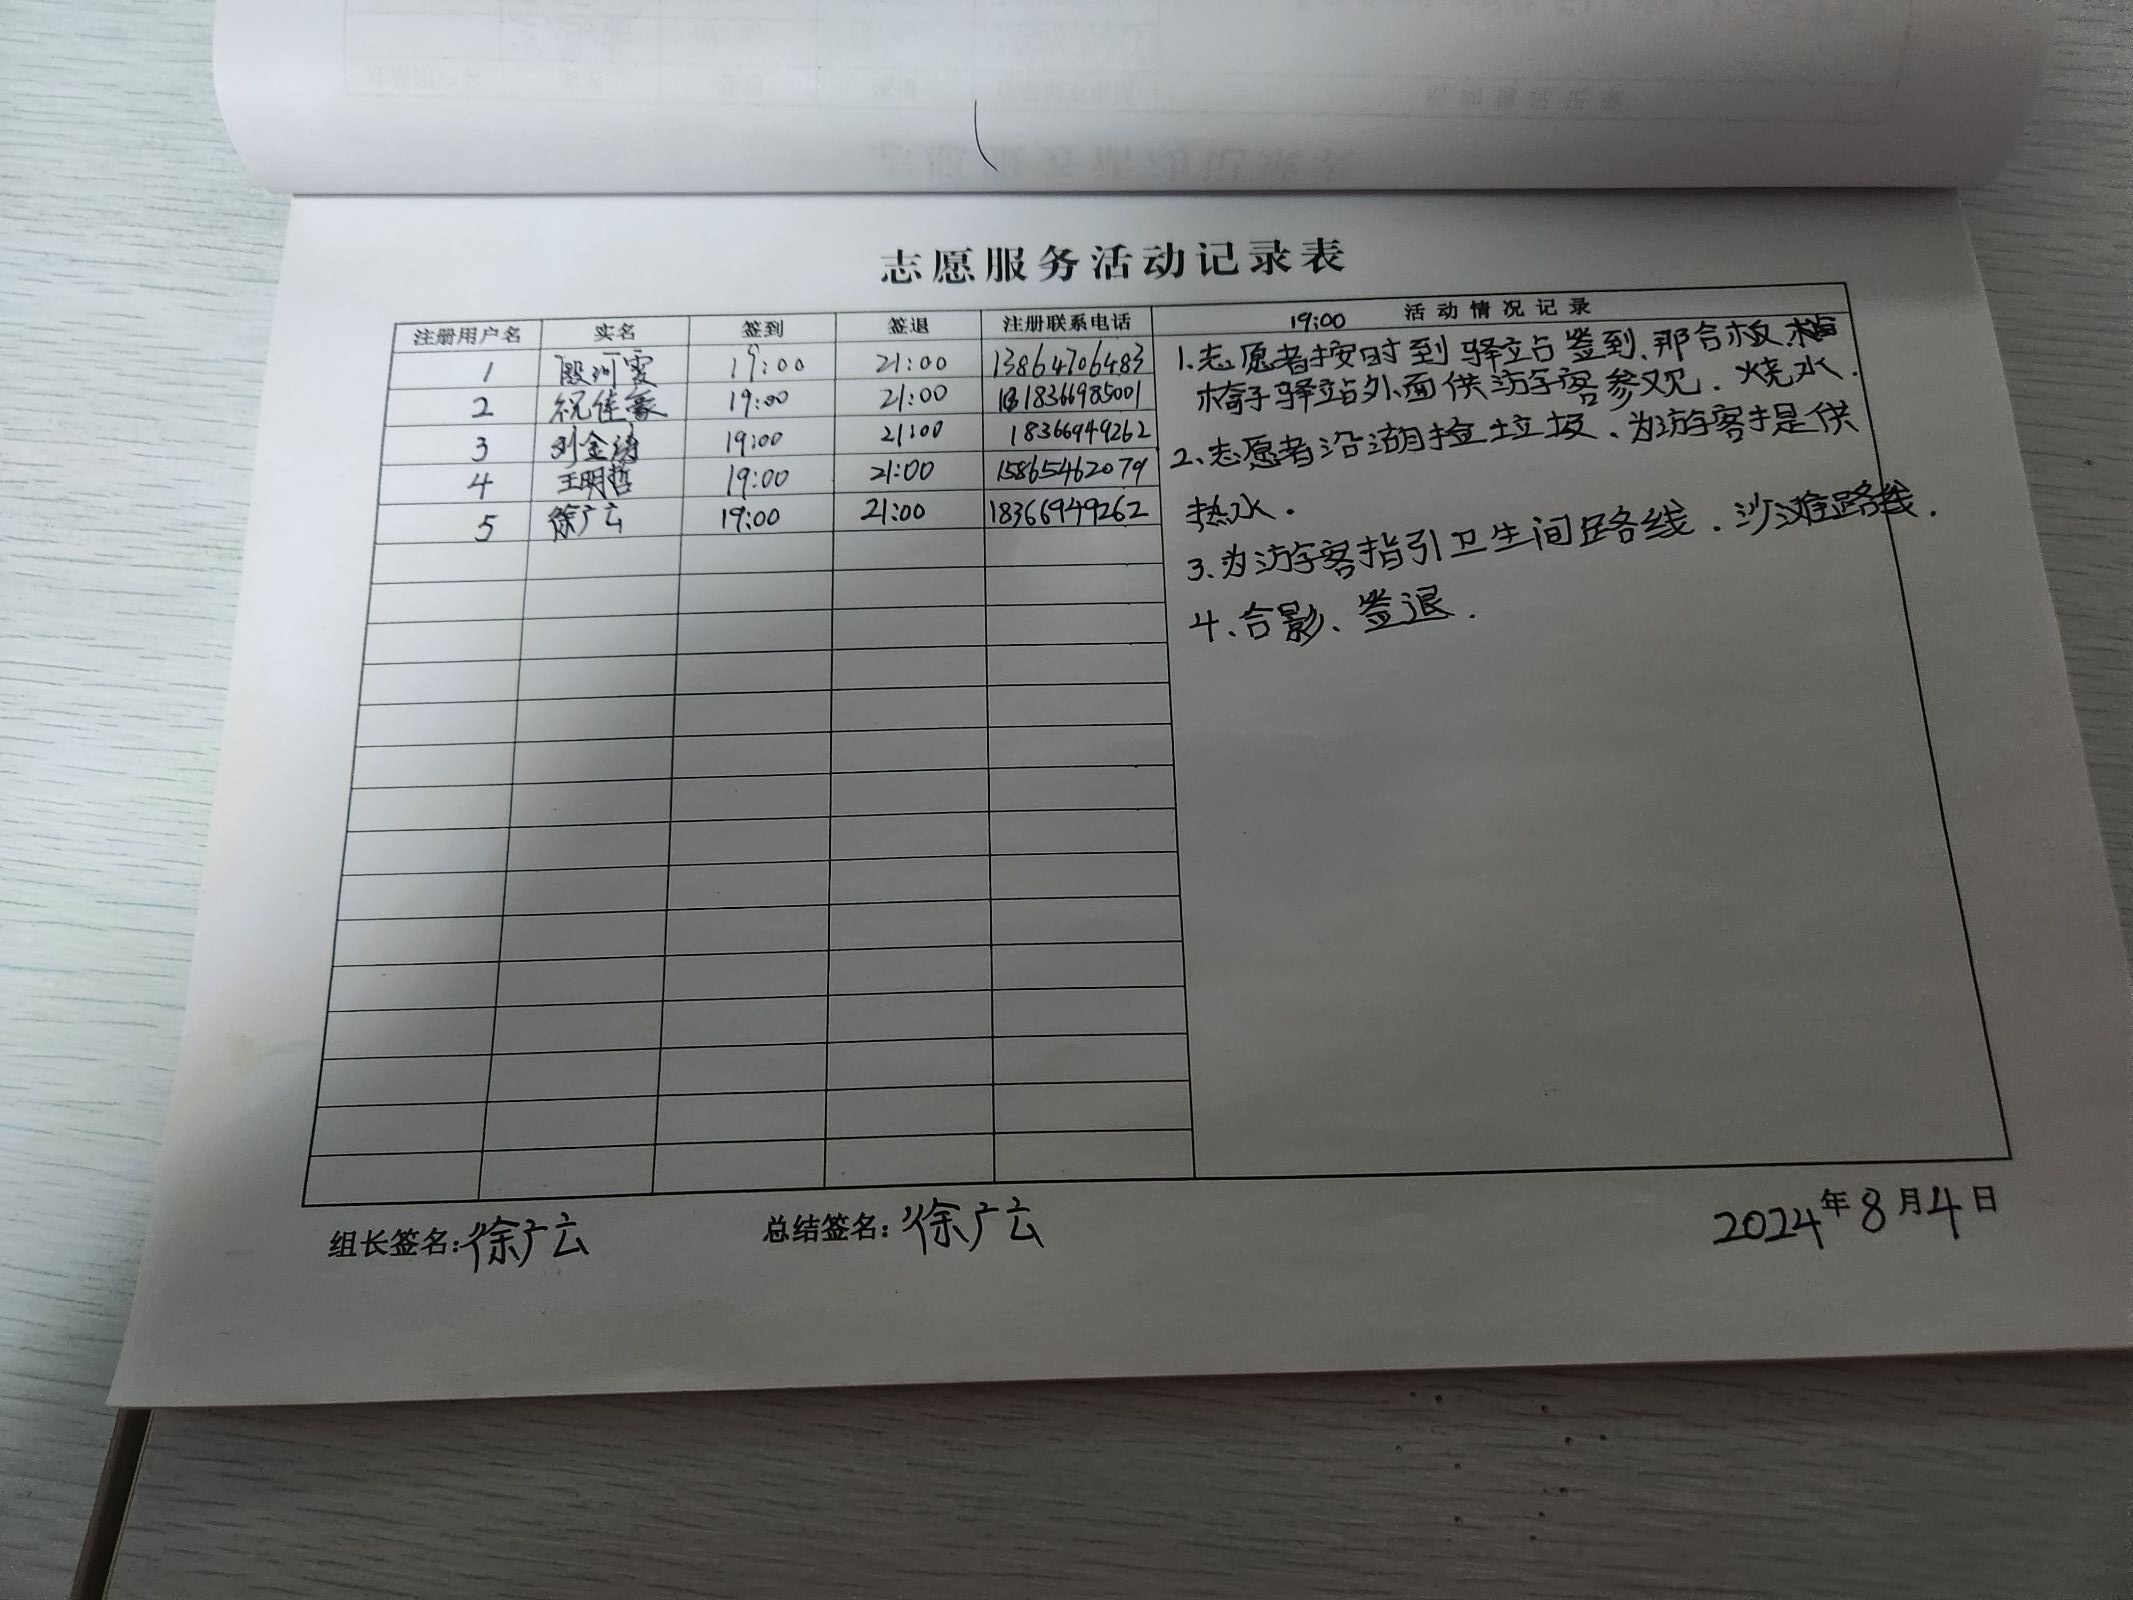 志愿服务活动记录表
注册用户名 实名 签到 签退 注册联系电话 19:00 活动情况记录
1 殷河雯 19:00 21:00 13864706483
2 祝佳豪 19:00 21:00 18366985001
3 刘金涛 19:00 21:00 18366949262
4 王明哲 19:00 21:00 15865462079
5 徐广云 19:00 21:00 18366949262
1.志愿者按时到驿站签到、那台板
椅子驿站外面供游客参观.烧水.
2.志愿者沿湖捡垃圾、为游客提供
热水.
3.为游客指引卫生间路线.沙滩路线.
4、合影、签退.
组长签名:徐广云 总结签名:徐广云 2024年8月4日